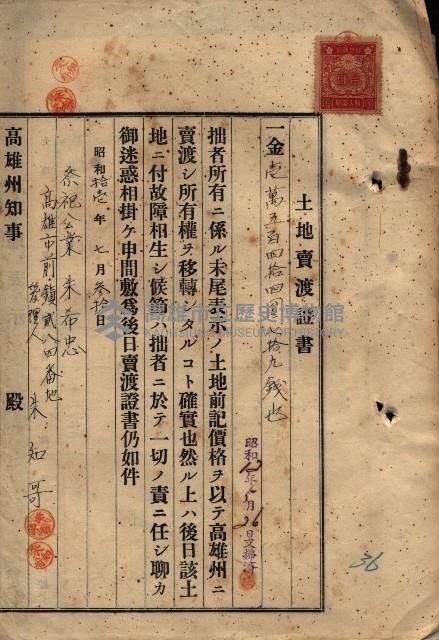 土地賣渡證書
一金壱萬五百四拾四圓八拾九錢也
昭和12年 月26日支拂濟
拙者所有ニ係ル末尾表示ノ土地前記價格ヲ以テ高雄州ニ
賣渡シ所有權ヲ移轉シタルコト確實也然ル上ハ後日該土
地ニ付故障相生シ候節ハ拙者ニ於テ一切ノ責ニ任シ聊カ
御迷惑相掛ケ申間敷為後日賣渡證書仍如件
昭和拾壱年七月参拾日
祭祀公業 朱希忠
高雄市前鎮弐八四番地
管理人 朱知哥
高雄州知事 殿
36
高雄市立歷史博物館